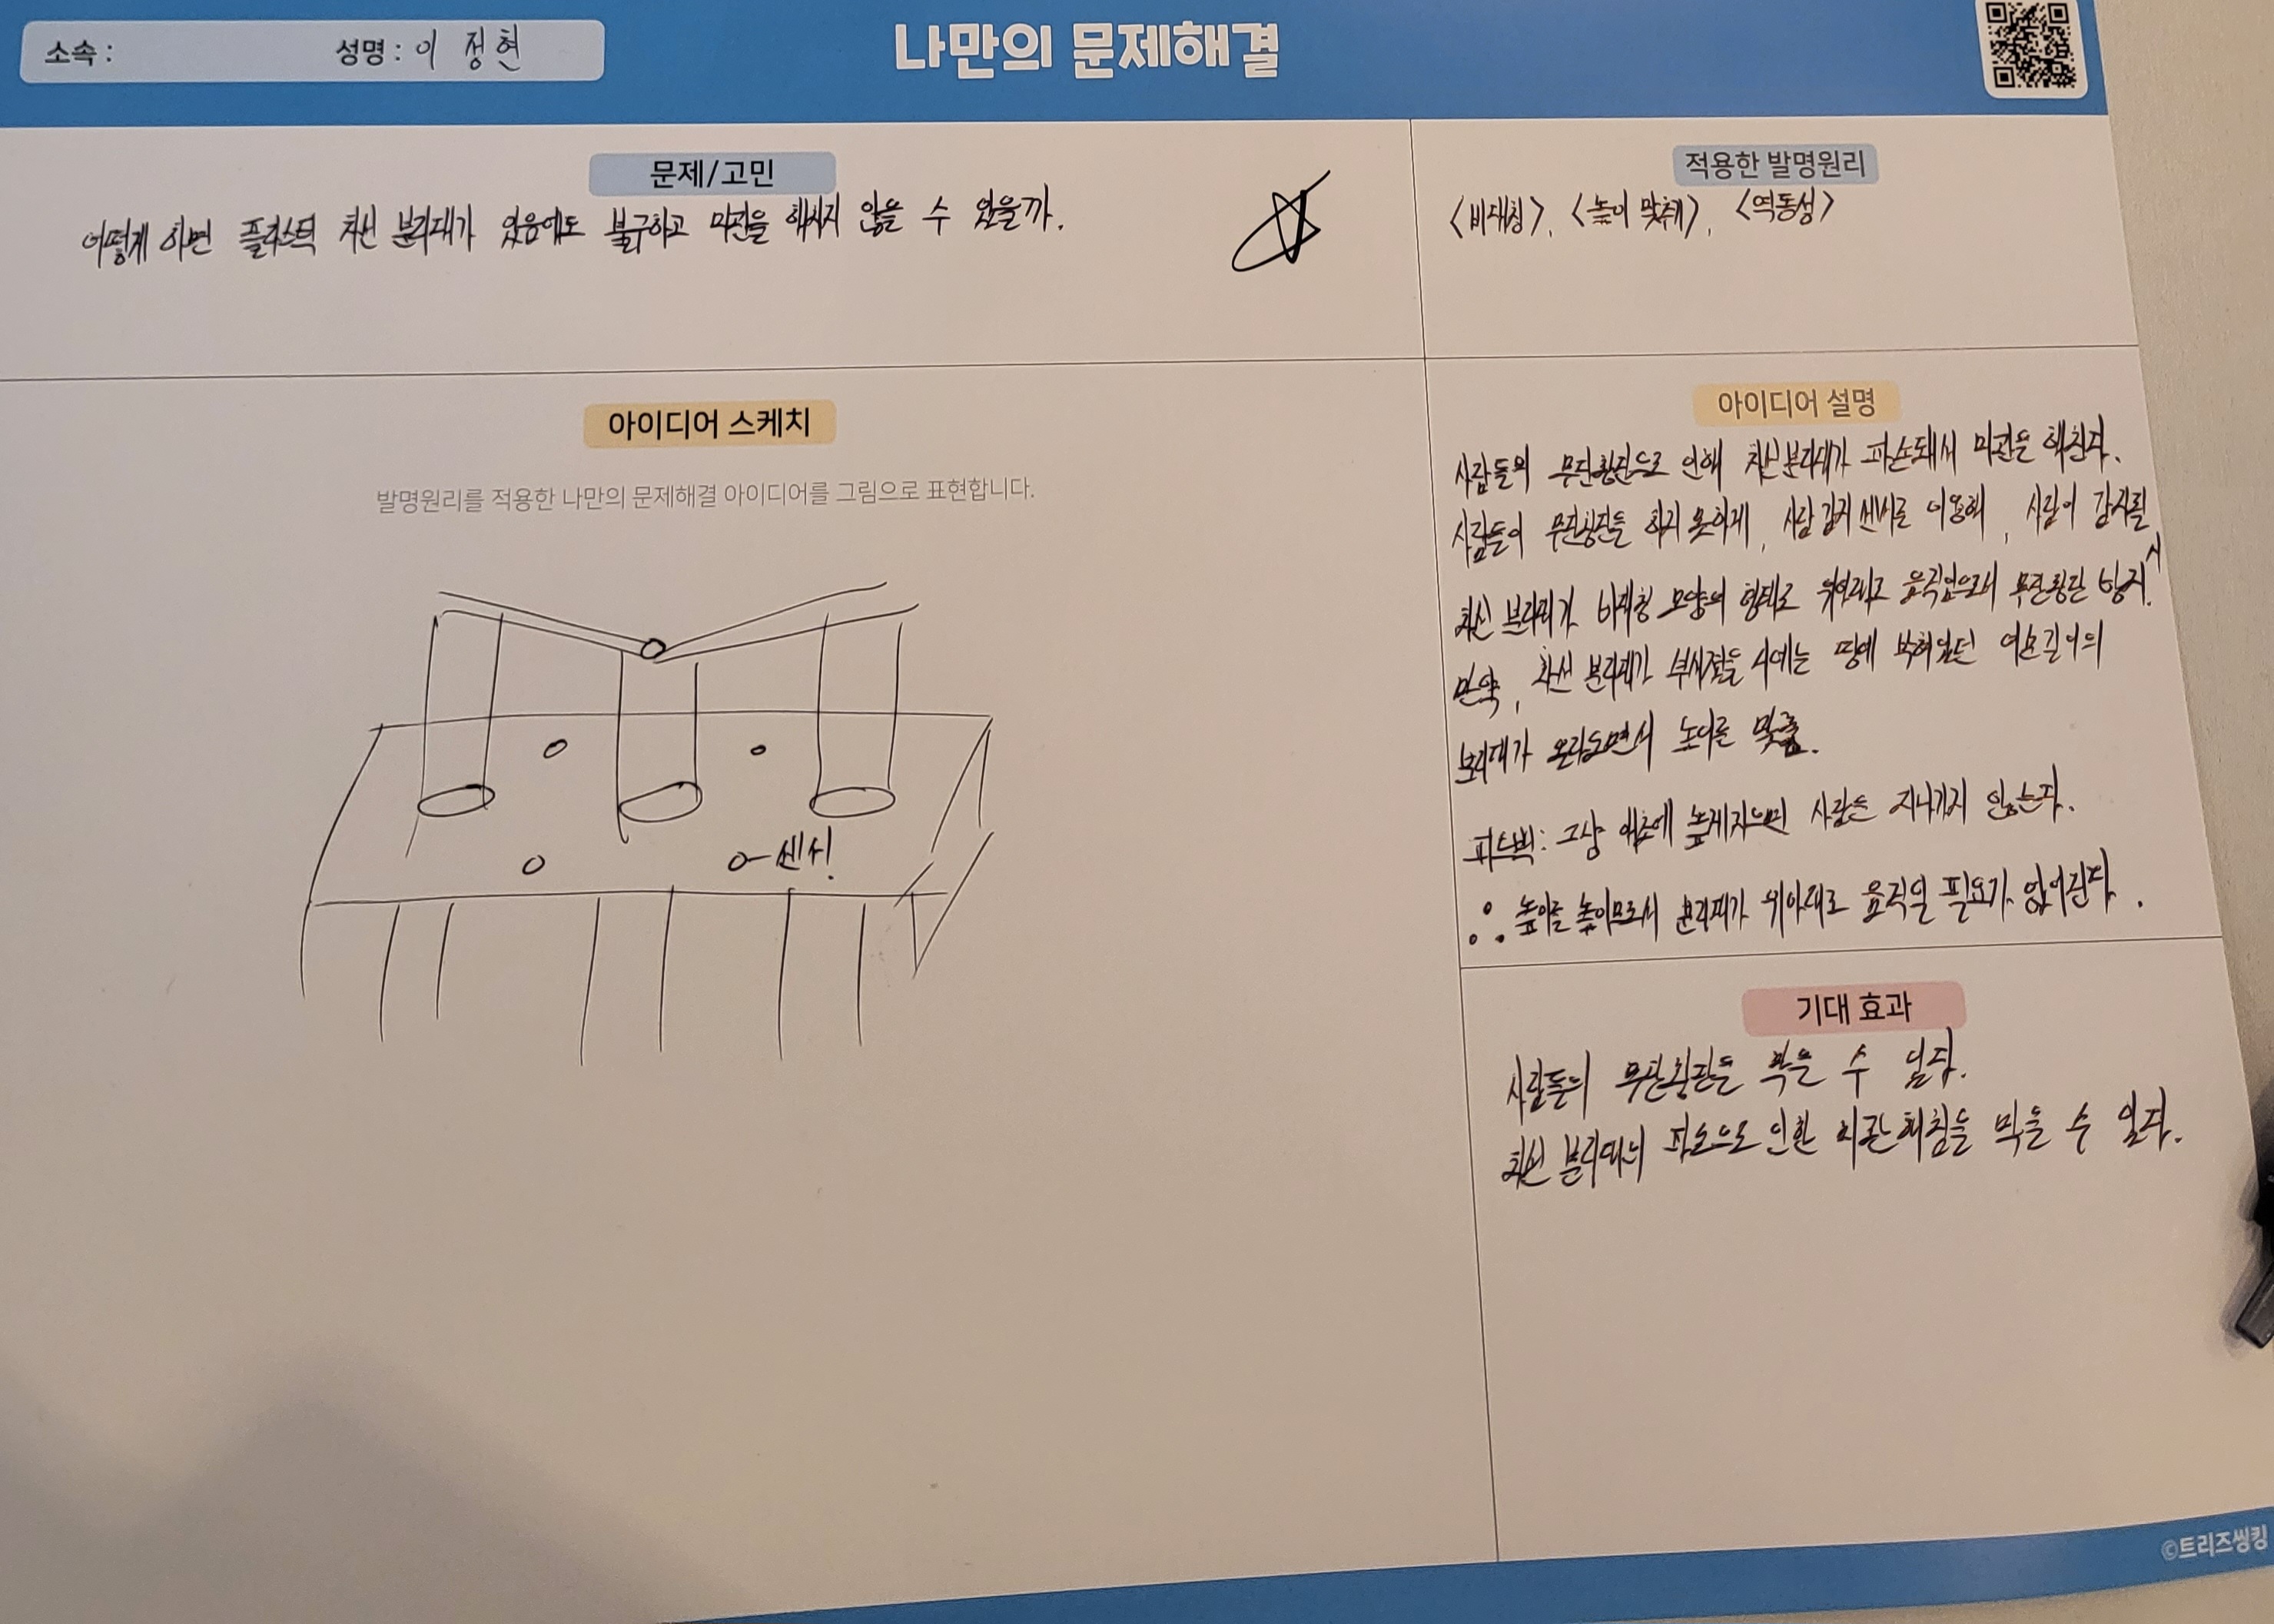 소속 :
성명 : 이 정현
나만의 문제해결
문제/고민
어떻게 하면 플라스틱 차선 분리대가 있음에도 불구하고 미관을 해치지 않을 수 있을까.
적용한 발명원리
<비대칭>, <높이 맞추기>, <역동성>
아이디어 스케치
발명원리를 적용한 나만의 문제해결 아이디어를 그림으로 표현합니다.
센서!
아이디어 설명
사람들의 무단횡단으로 인해 차선분리대가 파손돼서 미관을 해친다.
사람들이 무단횡단을 하지 못하게, 사람 감지 센서를 이용해, 사람이 감지될 시
차선 분리대가 비대칭 모양의 형태로 위아래로 움직임으로서 무단횡단 방지.
만약, 차선 분리대가 부서졌을 시에는 땅에 박혀있던 여분길이의
분리대가 올라오면서 높이를 맞춤.
피드백: 그냥 애초에 높게지으면 사람은 지나가지 않는다.
∴ 높이를 높이므로서 분리대가 위아래로 움직일 필요가 없어진다.
기대 효과
사람들의 무단횡단을 막을 수 있다.
차선 분리대의 파손으로 인한 미관 해침을 막을 수 있다.
©트리즈씽킹